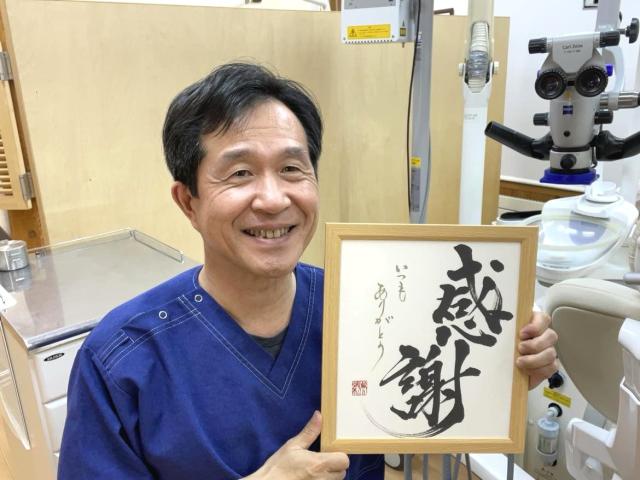 感謝
いつも
ありがとう
Carl Zeiss